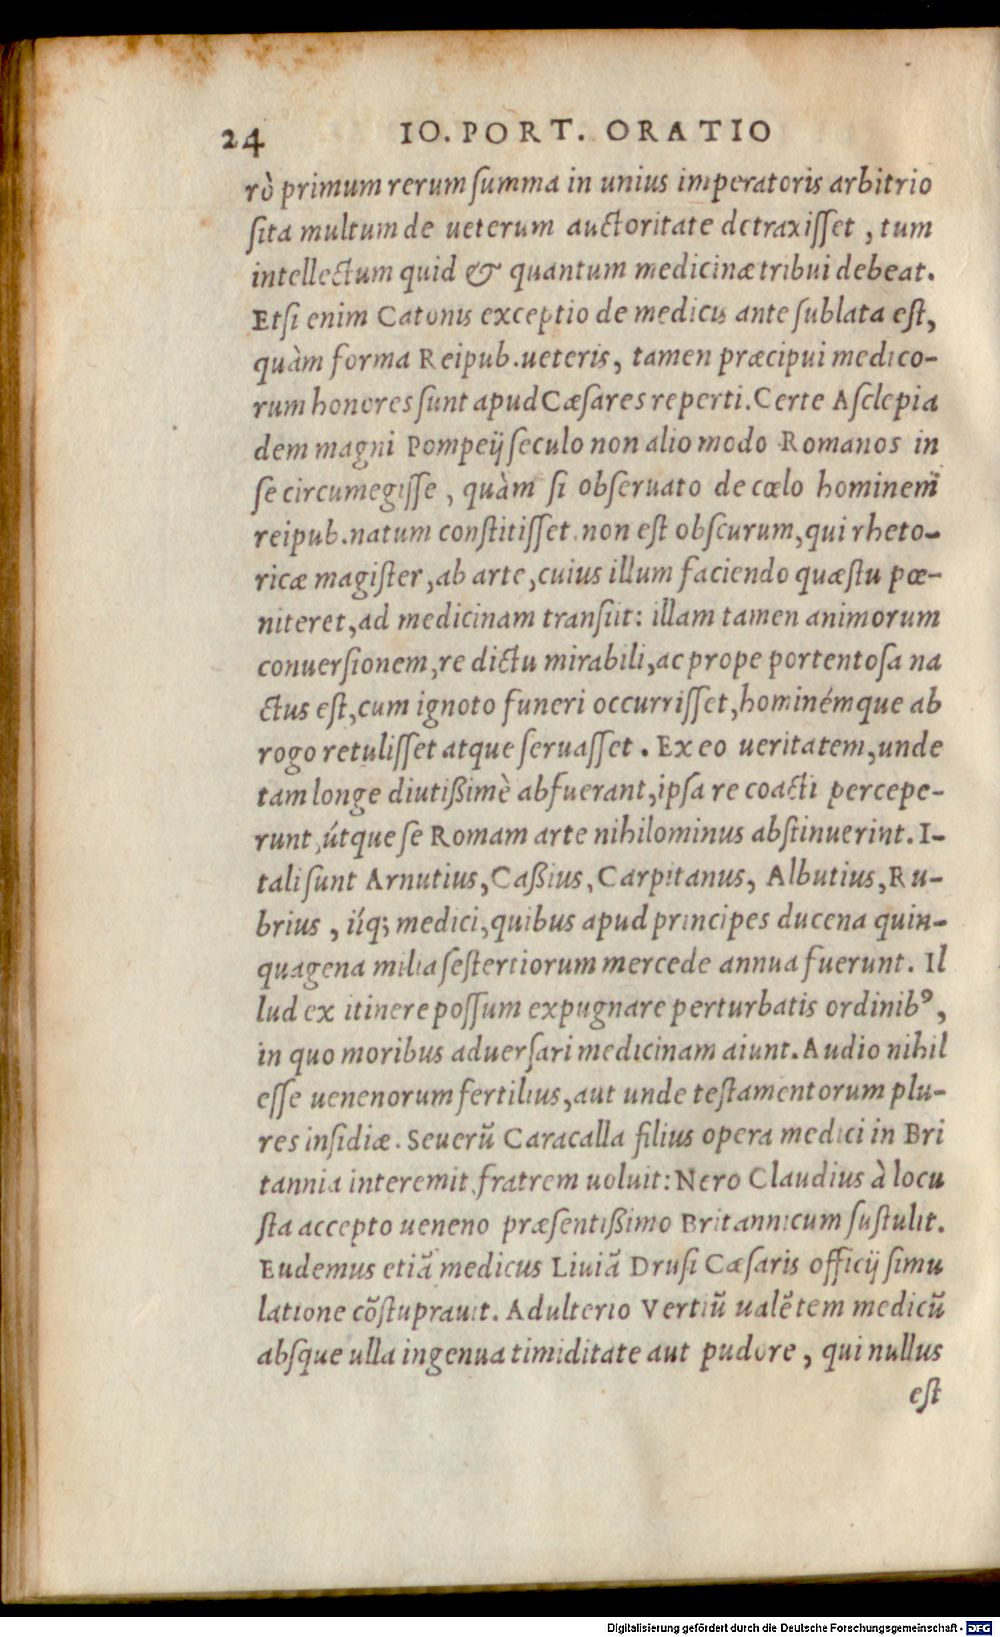 24 IO. PORT. ORATIO
rò primum rerum ſumma in unius imperatoris arbitrio
ſita multum de ueterum auctoritate detraxiſſet, tum
intellectum quid & quantum medicinæ tribui debeat.
Etſi enim Catonis exceptio de medicis ante ſublata eſt,
quàm forma Reipub. ueteris, tamen præcipui medico-
rum honores ſunt apud Cæſares reperti. Certe Aſclepia
dem magni Pompeij ſeculo non alio modo Romanos in
ſe circumegiſſe, quàm ſi obſeruato de cœlo hominem
reipub. natum conſtitiſſet. non eſt obſcurum, qui rheto-
ricæ magiſter, ab arte, cuius illum faciendo quæſtu pœ-
niteret, ad medicinam tranſiit: illam tamen animorum
conuerſionem, re dictu mirabili, ac prope portentoſa na
ctus eſt, cum ignoto funeri occurriſſet, hominémque ab
rogo retuliſſet atque ſeruaſſet. Ex eo ueritatem, unde
tam longe diutißimè abfuerant, ipſa re coacti percepe-
runt, útque ſe Romam arte nihilominus abſtinuerint. I-
tali ſunt Arnutius, Caßius, Carpitanus, Albutius, Ru-
brius, iíq; medici, quibus apud principes ducena quin-
quagena milia ſeſtertiorum mercede annua fuerunt. Il
lud ex itinere poſſum expugnare perturbatis ordinibꝰ,
in quo moribus aduerſari medicinam aiunt. Audio nihil
eſſe uenenorum fertilius, aut unde teſtamentorum plu-
res inſidiæ. Seuerũ Caracalla filius opera medici in Bri
tannia interemit, fratrem uoluit: Nero Claudius à locu
ſta accepto ueneno præſentißimo Britannicum ſuſtulit.
Eudemus etiã medicus Liuiã Druſi Cæſaris officij ſimu
latione cõſtuprauit. Adulterio Vertiũ ualẽtem medicũ
abſque ulla ingenua timiditate aut pudore, qui nullus
eſt
Digitalisierung gefördert durch die Deutsche Forschungsgemeinschaft - DFG